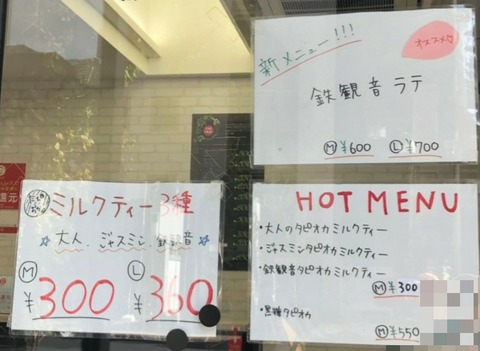 新メニュー!!!
オススメ
鉄観音ラテ
Ⓜ ¥600 Ⓛ ¥700
ミルクティー 3種
☆大人、ジャスミン、鉄観音☆
Ⓜ ¥300 Ⓛ ¥360
HOT MENU
・大人のタピオカミルクティー
・ジャスミンタピオカミルクティー
・鉄観音タピオカミルクティー
Ⓜ ¥300
・黒糖タピオカ
Ⓜ ¥550
還元